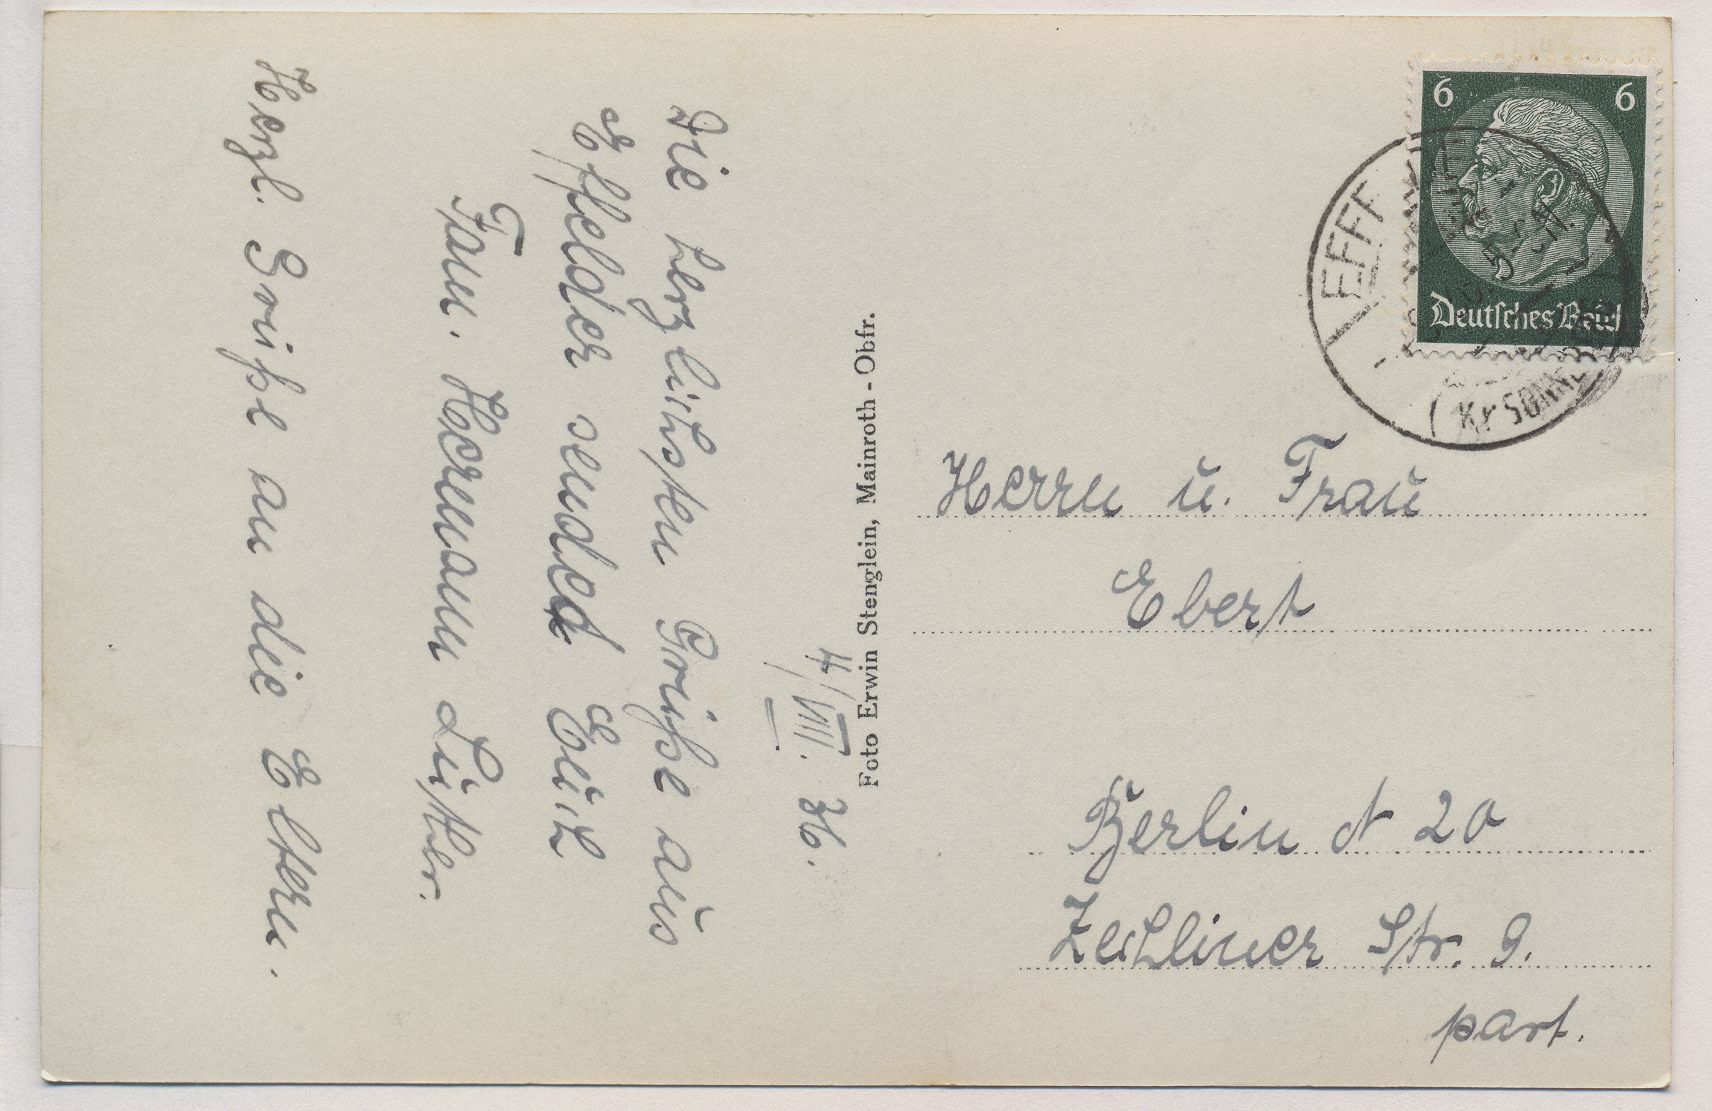 4/VIII. 36.
Die herzlichsten Grüße aus
Effelder sendet Euch
Fam. Hermann Lüther.
Herzl. Grüße an die Eltern.
Foto Erwin Stenglein, Mainroth - Obfr.
6 6
Deutsches Reich
EFF
(Kr SONNE
Herrn u. Frau
Ebert
Berlin N 20
Zechliner Str. 9.
part.